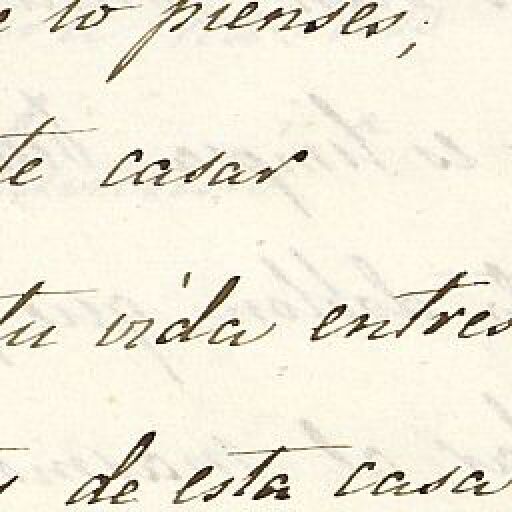 lo pienses;
te casar
tu vida entres
de esta casa